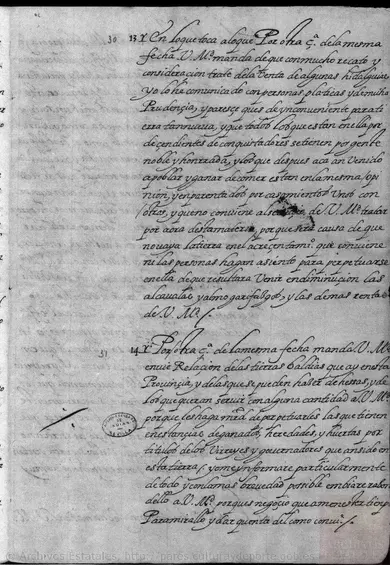 30 13 Y En lo que toca a lo que Por otra ç.ª de la mesma
fecha V. M.d manda de que con mucho recato y
consideración trate de la Venta de algunas hidalguias
yo lo he comunicado con personas platicas y de mucha
Prudencia, y parece que es de ynconveniente para ti
erra tan nueva, y que todos los que estan en ella por
decendientes de conquistadores se tienen por gente
noble y honrrada, y los que despues aca an Venido
a poblar y ganar de comer estan en la mesma opi
nion, y enparentados por casamientos Unos con
otros, y que no conviene al servicio de V. M.d tratar
por aora desta materia, porque sera causa de que
no vaya la tierra en el acreçentami.º que conviene
ni las personas hagan asiento para perpetuarse
en ella de que resultara Venir en diminucion las
alcavalas y almojarifasgos, y las demas rentas
de V. M.d /.
31 14 Y Por otra ç.ª de la mesma fecha manda V. M.d
envie Relacion de las tierras baldias que ay en esta
Provincia, y de las que se pueden hazer dehessas, y de
los que querran servir con alguna cantidad a V. M.d
porque les haga m.d de perpetuarles las que tienen
en estancias de ganados, heredades, y huertas por
titulos de los Virreyes y governadores que an sido en
esta tierra / yo me ynformare particularmente
de todo y con la mas brevedad posible embiare razon
dello a V. M.d porques negocio que a menester tiempo
Para mirallo y dar quenta del como convi.e /.
© Archivos Estatales,